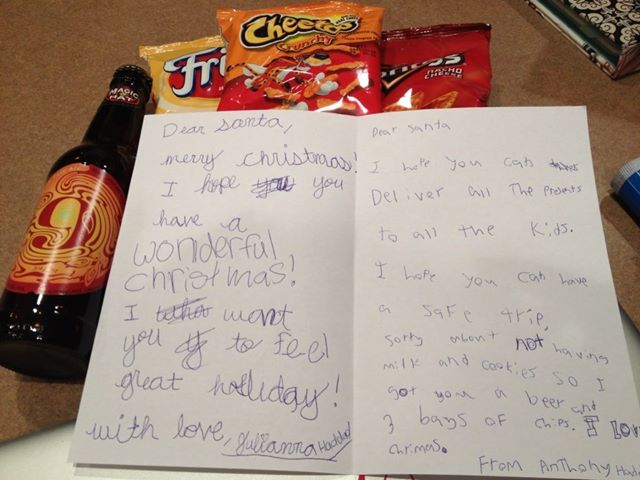 Fri
Cheetos
Crunchy
NACHO
CHEESE
MAGIC
HAT
9
Dear santa,
merry christmas!
I hope you
have a
wonderful
christmas!
I want
you to feel
great holliday!
with love, Julianna Haddad
Dear Santa
I hope you can
Deliver all The presents
to all the Kids.
I hope you can have
a safe trip,
sorry about not having
milk and cookies so I
got you a beer and
3 bags of chips. I lov
chrimas.
From Anthony Hadd